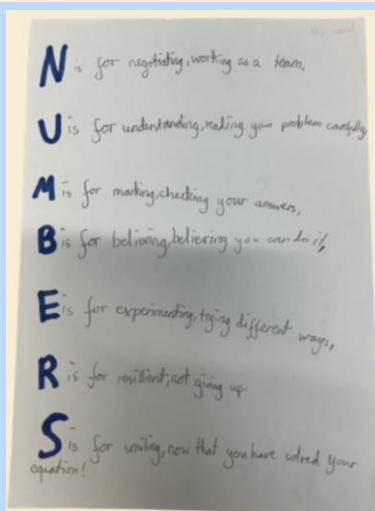 N is for negotiating, working as a team,
U is for understanding, reading your problem carefully
M is for marking, checking your answers,
B is for believing, believing you can do it,
E is for experimenting, trying different ways,
R is for resilient, not giving up.
S is for smiling, now that you have solved your
equation!